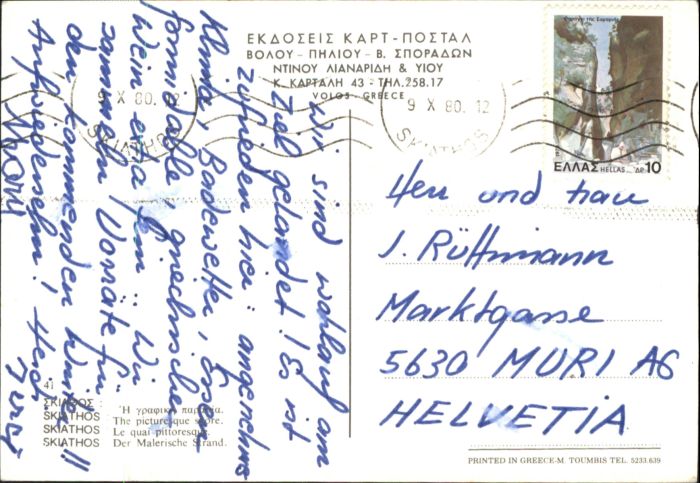 ΕΚΔΟΣΕΙΣ ΚΑΡΤ-ΠΟΣΤΑΛ
ΒΟΛΟΥ - ΠΗΛΙΟΥ - Β. ΣΠΟΡΑΔΩΝ
ΝΤΙΝΟΥ ΛΙΑΝΑΡΙΔΗ & ΥΙΟΥ
Κ. ΚΑΡΤΑΛΗ 43 - ΤΗΛ. 258.17
VOLOS - GREECE
9 X 80. 12
SKIATHOS
9 X 80. 12
SKIATHOS
ΕΛΛΑΣ HELLAS ΔΡ 10
Wir sind wohlauf am
Ziel gelandet! Es ist
zufrieden hier: angenehmes
Klima, Badewetter, Essen
formidable, griechischer
Wein etc. Wir
sammeln Vorräte für
den kommenden Winter!!
Aufwiedersehn!
Herr und Frau
J. Rüttimann
Marktgasse
5630 MURI AG
HELVETIA
41
ΣΚΙΑΘΟΣ : Ἡ γραφικὴ παραλία.
SKIATHOS : The picturesque shore.
SKIATHOS : Le quai pittoresque.
SKIATHOS : Der Malerische Strand.
PRINTED IN GREECE-M. TOUMBIS TEL. 5233.639